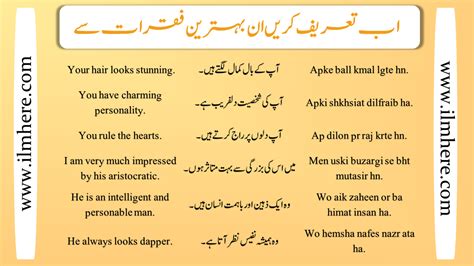 اب تعریف کریں ان بہترین فقرات سے
Your hair looks stunning.
آپ کے بال کمال لگتے ہیں۔
Apke ball kmal lgte hn.
You have charming
personality.
آپ کی شخصیت دلفریب ہے۔
Apki shkhsiat dilfraib ha.
You rule the hearts.
آپ دلوں پر راج کرتے ہیں۔
Ap dilon pr raj krte hn.
I am very much impressed
by his aristocratic.
میں اس کی بزرگی سے بہت متاثر ہوں۔
Men uski buzargi se bht
mutasir hn.
He is an intelligent and
personable man.
وہ ایک ذہین اور باہمت انسان ہیں۔
Wo aik zaheen or ba
himat insan ha.
He always looks dapper.
وہ ہمیشہ نفیس نظر آتا ہے۔
Wo hemsha nafes nazr ata
ha.
www.ilmhere.com
www.ilmhere.com